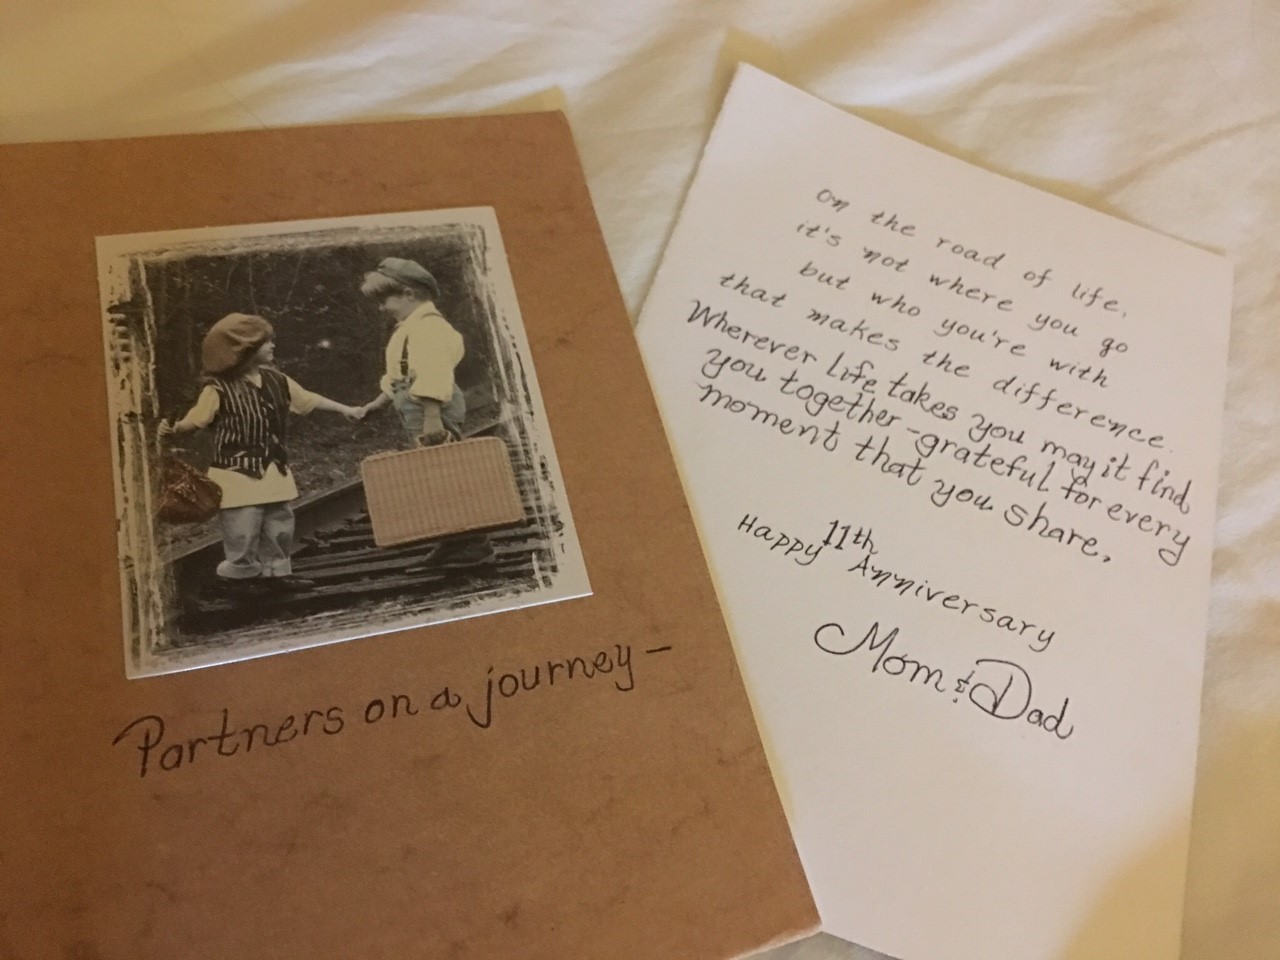 Partners on a journey –
on the road of life,
it's not where you go
but who you're with
that makes the difference.
Wherever life takes you may it find
you together – grateful for every
moment that you share,
Happy 11th Anniversary
Mom & Dad